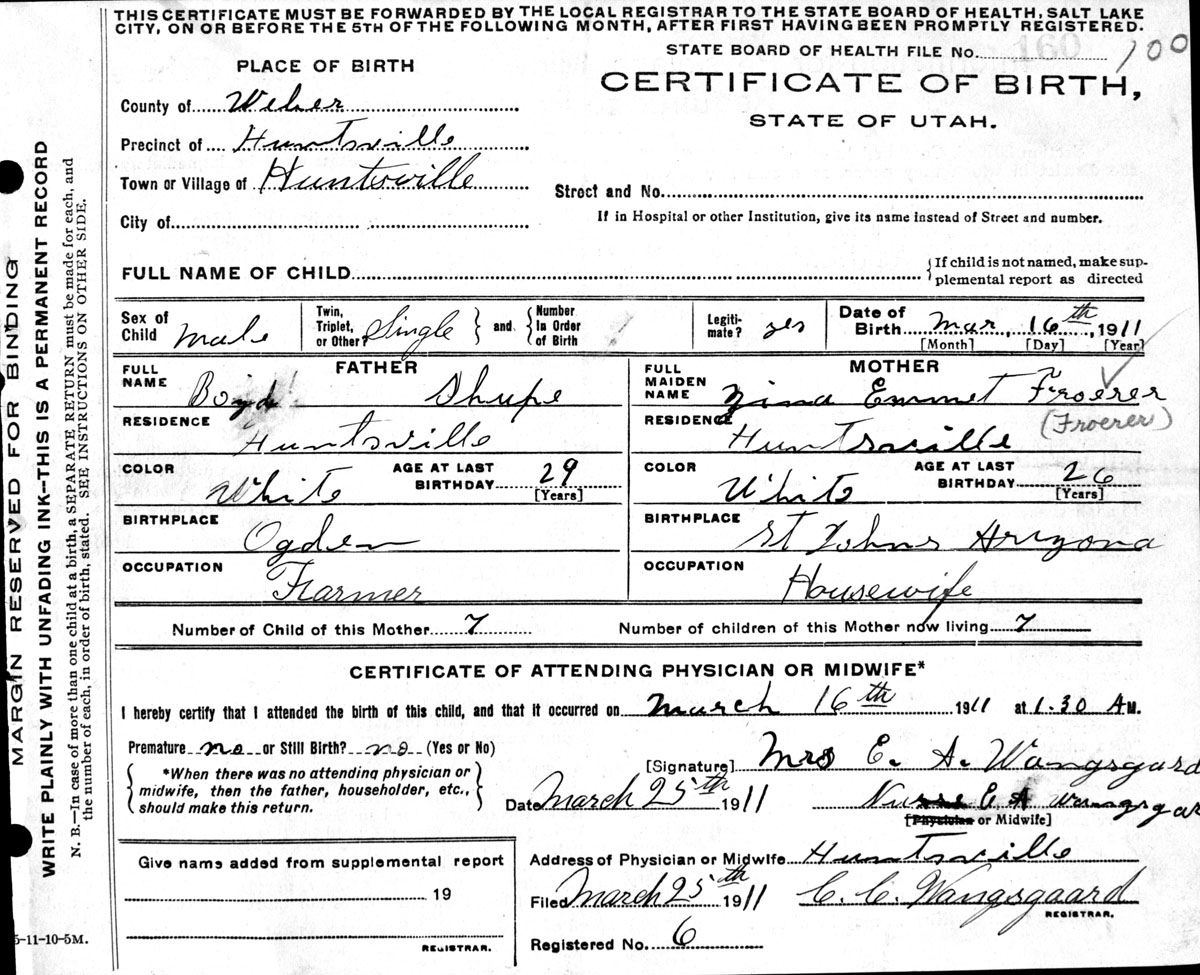 THIS CERTIFICATE MUST BE FORWARDED BY THE LOCAL REGISTRAR TO THE STATE BOARD OF HEALTH, SALT LAKE
CITY, ON OR BEFORE THE 5TH OF THE FOLLOWING MONTH, AFTER FIRST HAVING BEEN PROMPTLY REGISTERED.
STATE BOARD OF HEALTH FILE No. 100
PLACE OF BIRTH
CERTIFICATE OF BIRTH,
STATE OF UTAH.
County of Weber
Precinct of Huntsville
Town or Village of Huntsville
Street and No.
City of
If in Hospital or other Institution, give its name instead of Street and number.
FULL NAME OF CHILD
{If child is not named, make sup-
plemental report as directed
Sex of Child male
Twin, Triplet, or Other? Single } and { Number In Order of Birth
Legiti-mate? yes
Date of Birth Mar, 16th, 1911
[Month] [Day] [Year]
FATHER
MOTHER
FULL NAME Boyd Shupe
FULL MAIDEN NAME Zina Emmet Froerer
(Froerer)
RESIDENCE Huntsville
RESIDENCE Huntsville
COLOR White AGE AT LAST BIRTHDAY 29 [Years]
COLOR White AGE AT LAST BIRTHDAY 26 [Years]
BIRTHPLACE Ogden
BIRTHPLACE St Johns Arizona
OCCUPATION Farmer
OCCUPATION Housewife
Number of Child of this Mother 7 Number of children of this Mother now living 7
CERTIFICATE OF ATTENDING PHYSICIAN OR MIDWIFE*
I hereby certify that I attended the birth of this child, and that it occurred on March 16th 1911 at 1.30 A M.
Premature no or Still Birth? no (Yes or No)
{ *When there was no attending physician or
midwife, then the father, householder, etc.,
should make this return. }
[Signature] Mrs E. A. Wangsgard
Date March 25th 1911 Nurse E A Wangsgar
[Physician or Midwife]
Give name added from supplemental report
19
REGISTRAR.
Address of Physician or Midwife Huntsville
Filed March 25th 1911 C. C. Wangsgaard
REGISTRAR.
Registered No. 6
5-11-10-5M.
MARGIN RESERVED FOR BINDING
WRITE PLAINLY WITH UNFADING INK—THIS IS A PERMANENT RECORD
N. B.—In case of more than one child at a birth, a SEPARATE RETURN must be made for each, and
the number of each, in order of birth, stated. SEE INSTRUCTIONS ON OTHER SIDE.